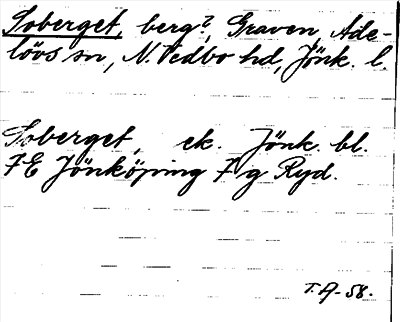 Soberget, berg?, Graven, Ade-
lövs sn, N. Vedbo hd, Jönk. l.
Soberget, ek. Jönk. bl.
7E Jönköping 7 g Ryd.
T.A-58.